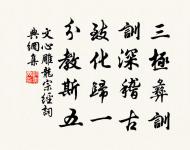 三極彝訓
訓深稽古
致化歸一
分教斯五
文心雕龍宗經詞
典網集